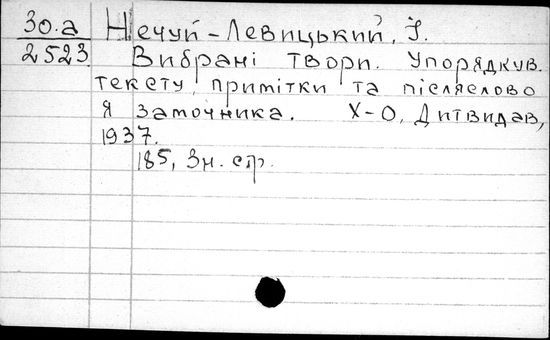 30.а Нечуй-Левицький, І.
2523 Вибрані твори. Упорядкув.
тексту, примітки та післяслово
Я Заточника. Х-О, Дитвидав,
1937.
185, 3н. стр.